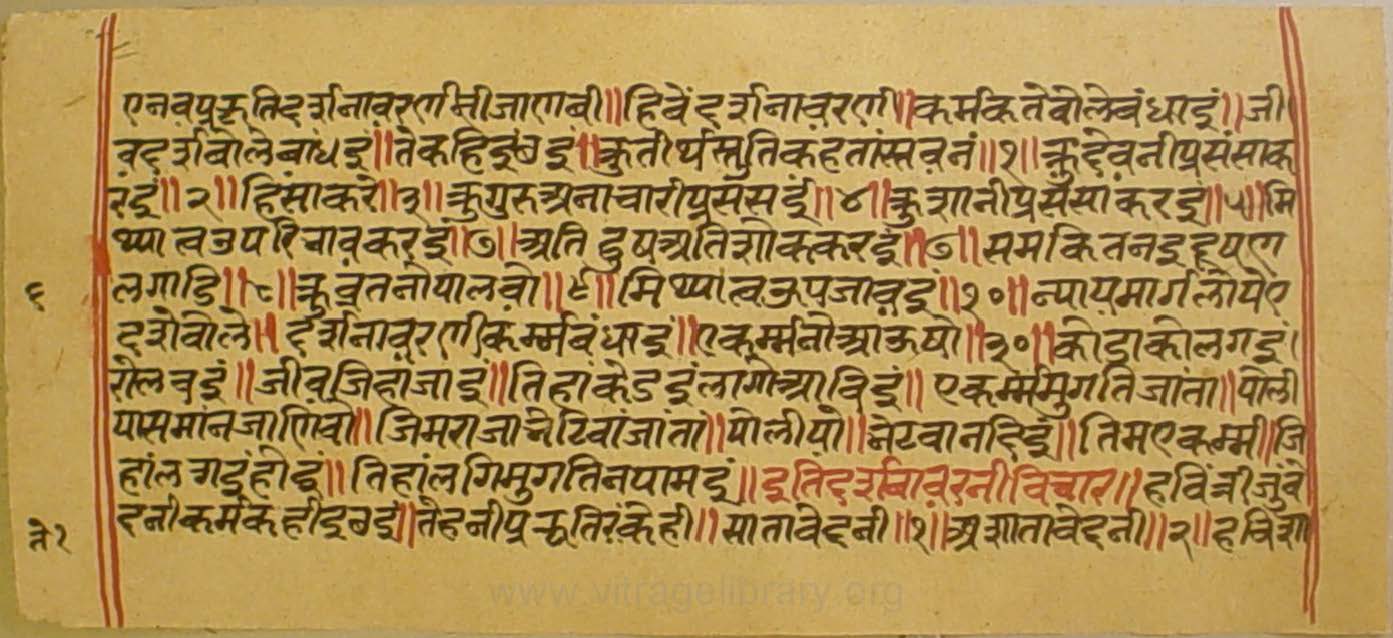 एनवप्रकृतिदर्शनावरणीनीजाणवी॥हिवेंदर्शनावरणी॥कर्मकतेबोलेबंधाइं॥जी
वदशबोलेबांधइ॥तेकहिइछइ॥कुतीर्थस्तुतिकहतांस्तवनं॥१॥कुदेवनीप्रसंसाक
रंइं॥२॥हिंसाकरे॥३॥कुगुरुअनाचारीप्रसंसइं॥४॥कुज्ञानीप्रसंसांकरइ॥५॥मि
थ्यात्वउपरिचावकरइं॥७॥अतिदुषअतिशोककरइं॥७॥समकितनइदूषण
लगाडि॥८॥कुव्रतनोपालवो॥९॥मिथ्यात्वऊपजावइं॥१०॥न्यायमार्गलोपेए
दशेबोले॥दर्शनावरणीकर्म्मबंधाइं॥एकर्म्मनोआऊषो॥३०॥कोडाकोलगइं।
रोलवइं॥जीवजिहांजाइं॥तिहांकेडइंलागोआविइं॥एकर्म्ममुगतिजांता॥पोली
यासमांनजाणिवो॥जिमराजानेटिवांजांतां॥पोलीयो॥नेटवानदिइं॥तिमएकर्म्म॥जि
हांलगइंहोइं॥तिहांलगिमुगतिनपामइं॥इतिदर्शनावरनीविचार॥हविंत्रीजुंवे
दनीकर्मकहीइछइं॥तेहनीप्रकृतिरंकेही॥सातावेदनी॥१॥अशातावेदनी॥२॥हविशा
६
ने२
www.vitragelibrary.org